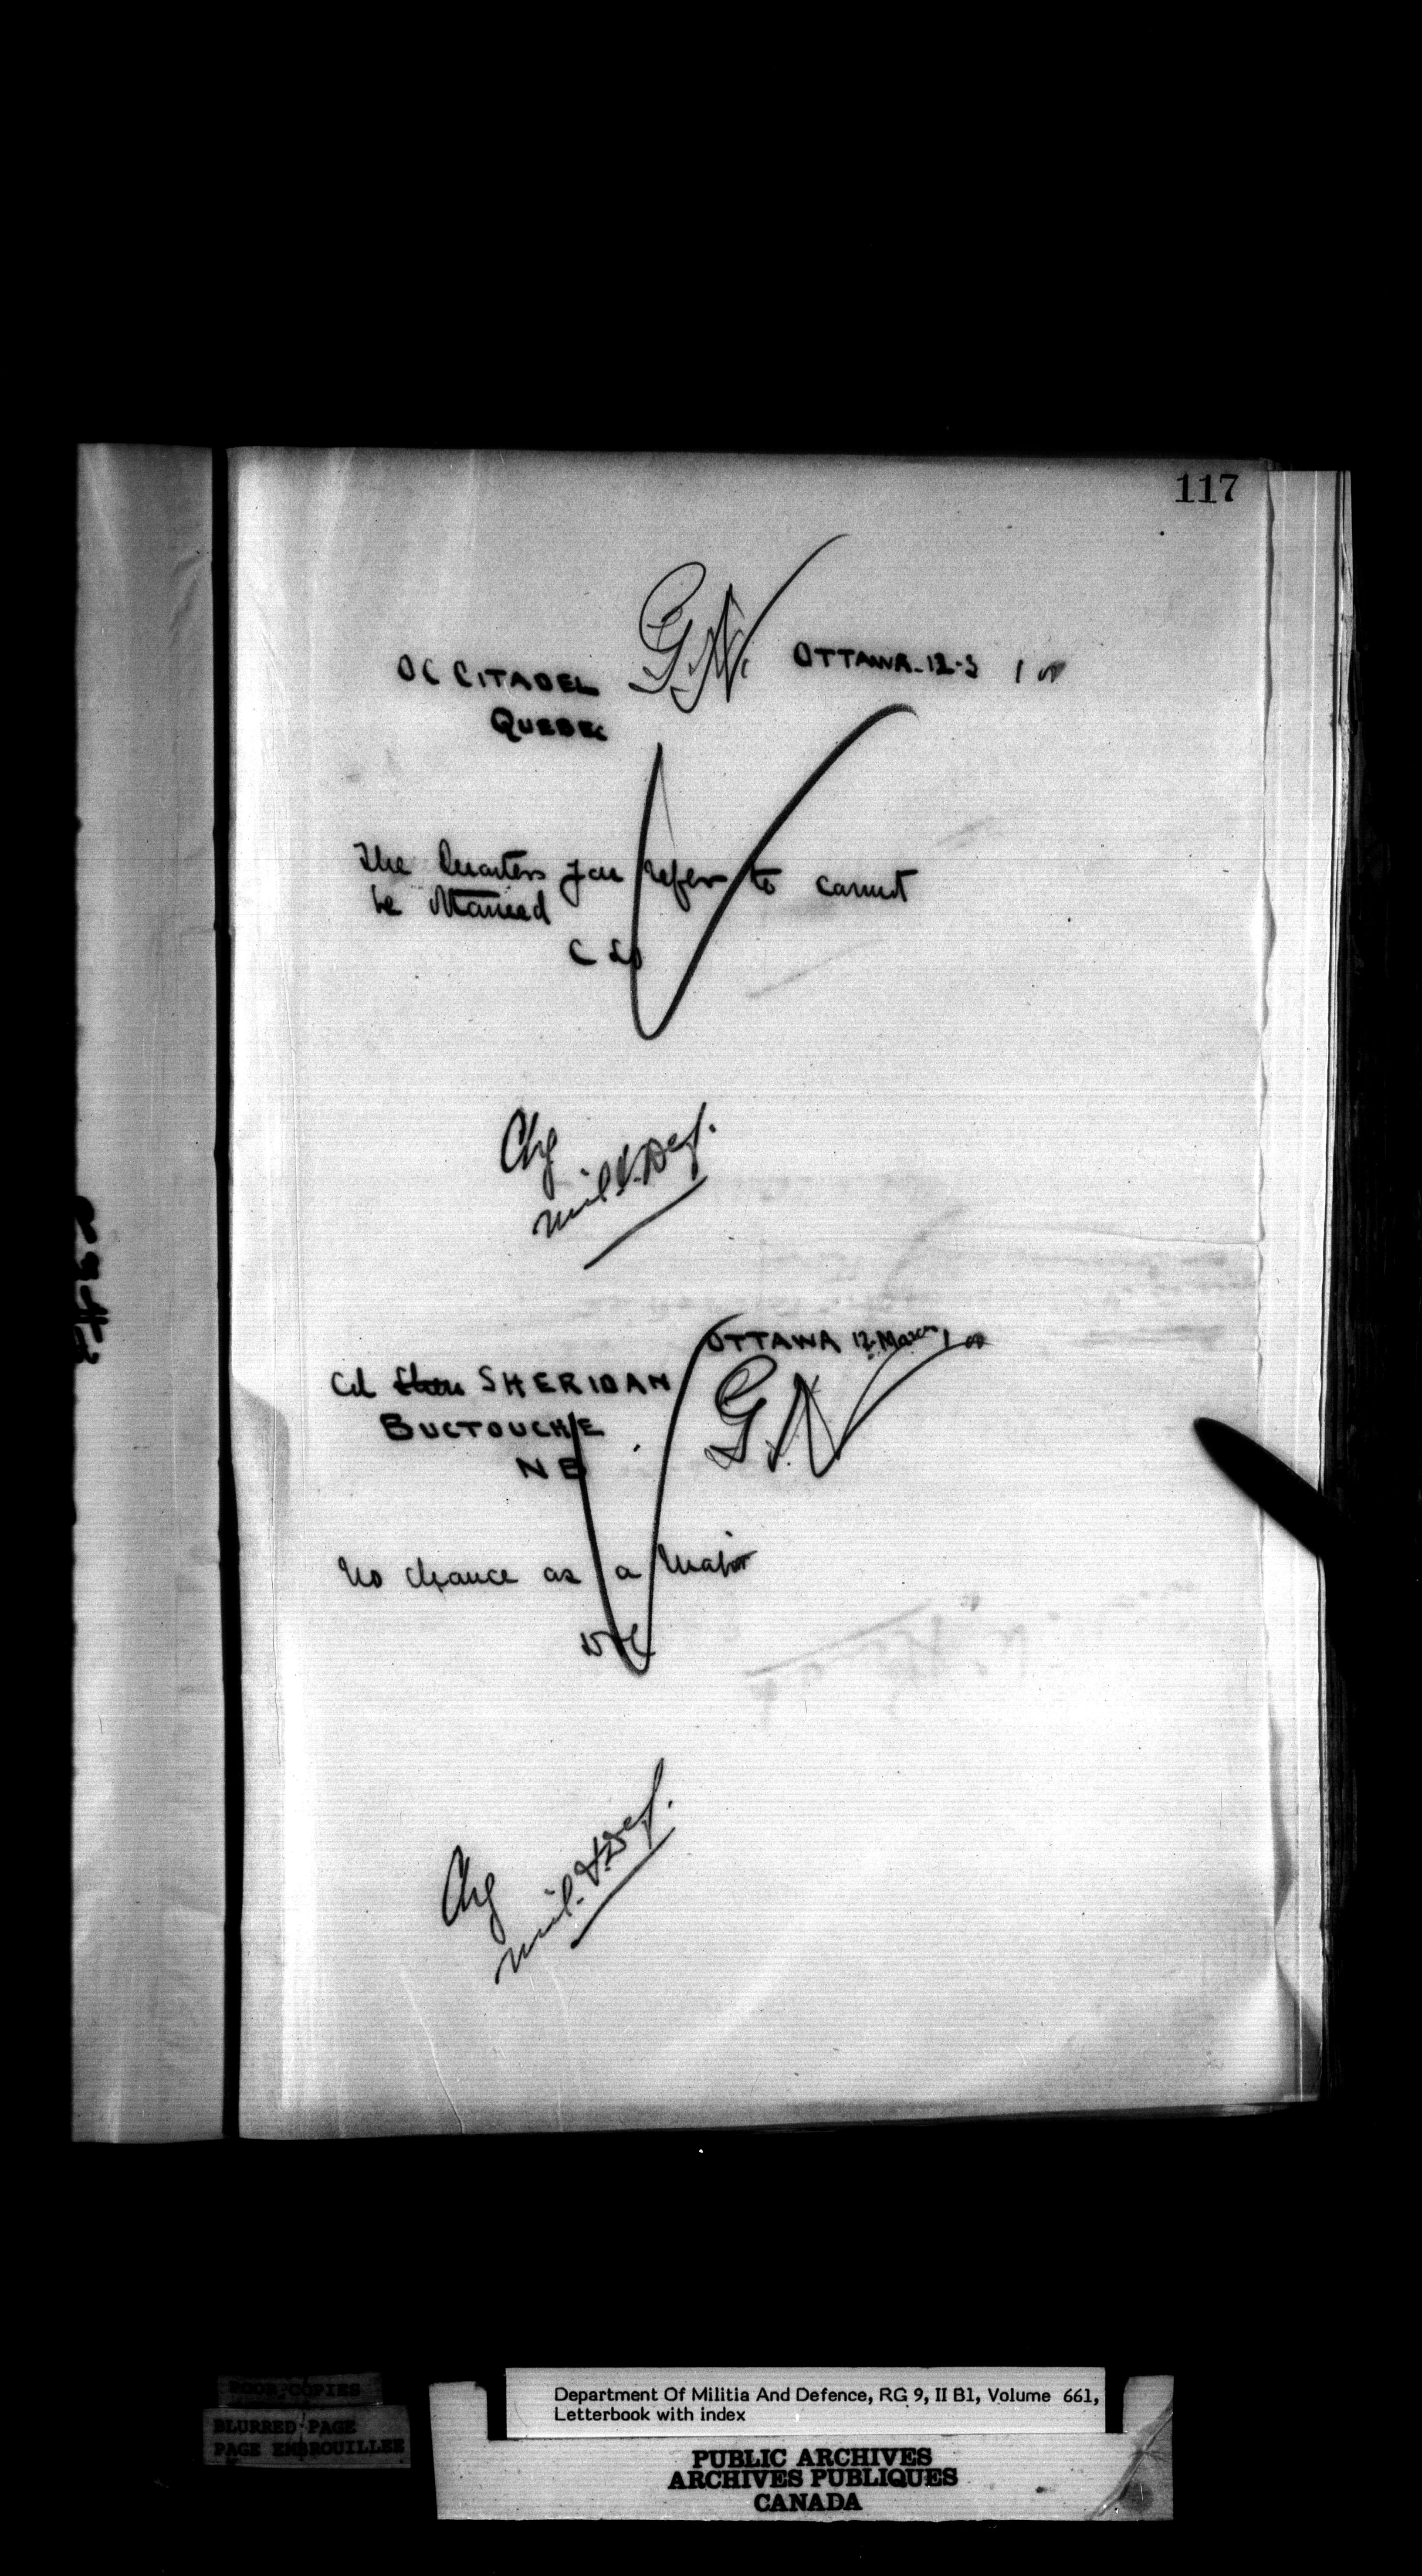 117
G.N.
OC CITADEL OTTAWA-12-3 1 00
QUEBEC
The Quarters you refer to cannot
be
C S O
Chg
Mil & Def.
OTTAWA 12 March 1 00
Col Sheri SHERIDAN
G.N.
BUCTOUCHE
N B
No chance as a Major
Chg
Mil. & Def.
POOR COPIES
BLURRED PAGE
PAGE EMBROUILLEE
Department Of Militia And Defence, RG 9, II B1, Volume 661,
Letterbook with index
PUBLIC ARCHIVES
ARCHIVES PUBLIQUES
CANADA